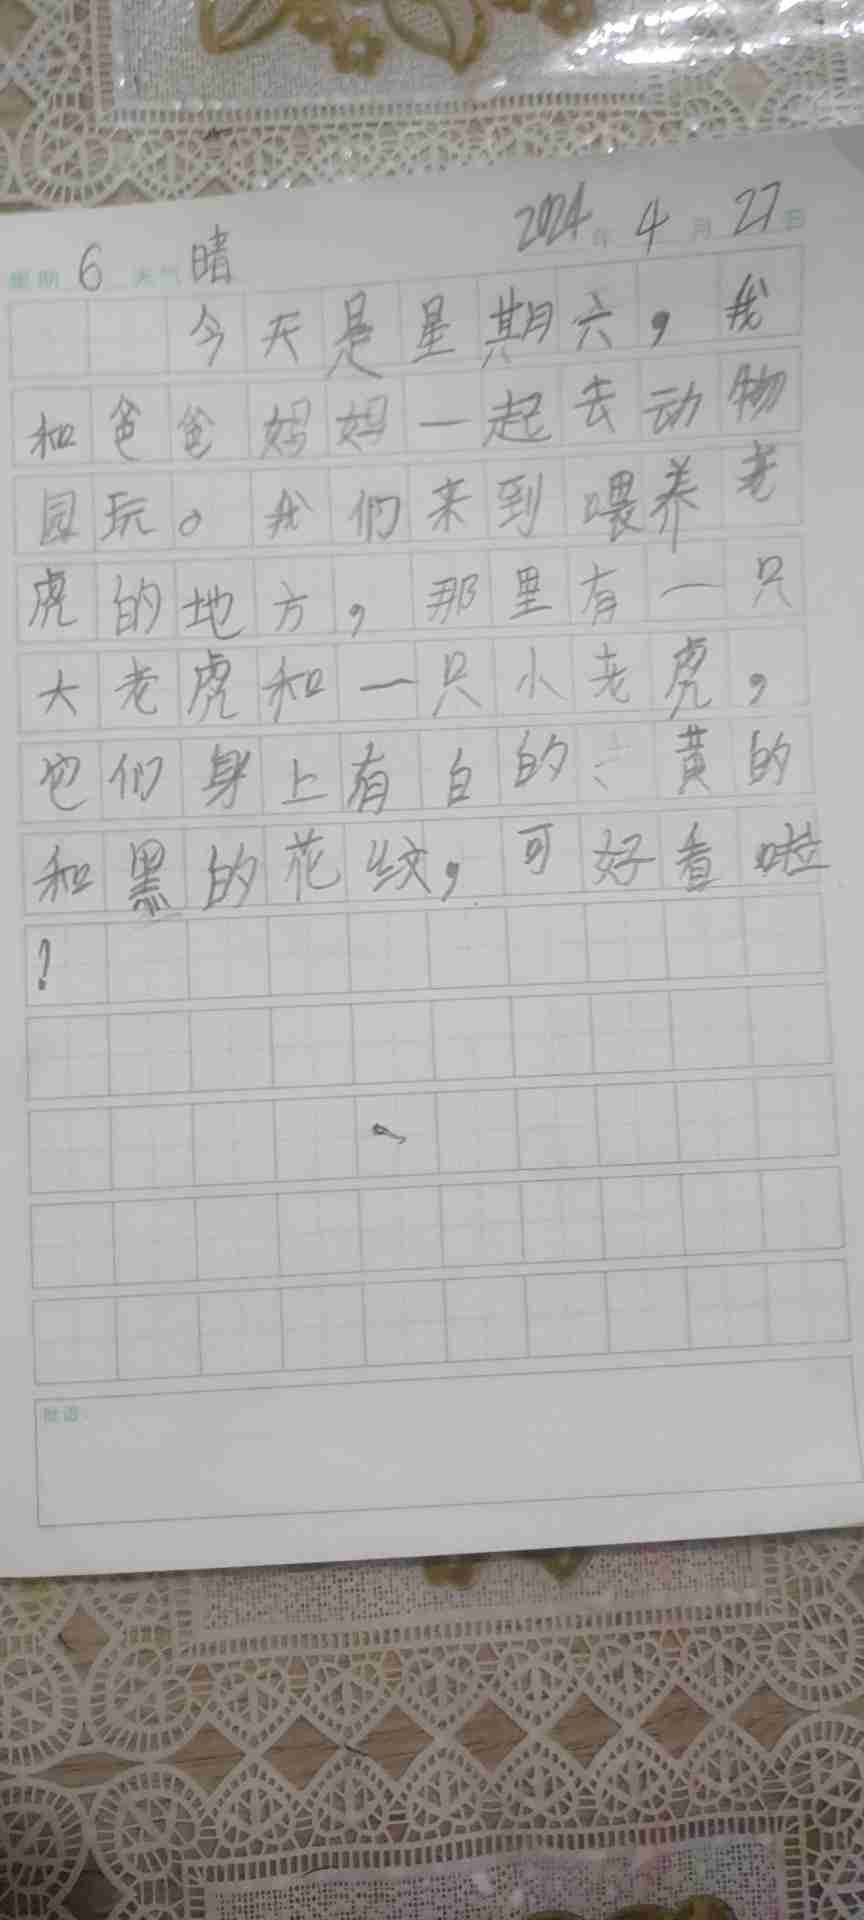 星期 6 天气 晴 2024年 4月 27日
今天是星期六，我
和爸爸妈妈一起去动物
园玩。我们来到喂养老
虎的地方，那里有一只
大老虎和一只小老虎，
它们身上有白的、黄的
和黑的花纹，可好看啦
！
批语：